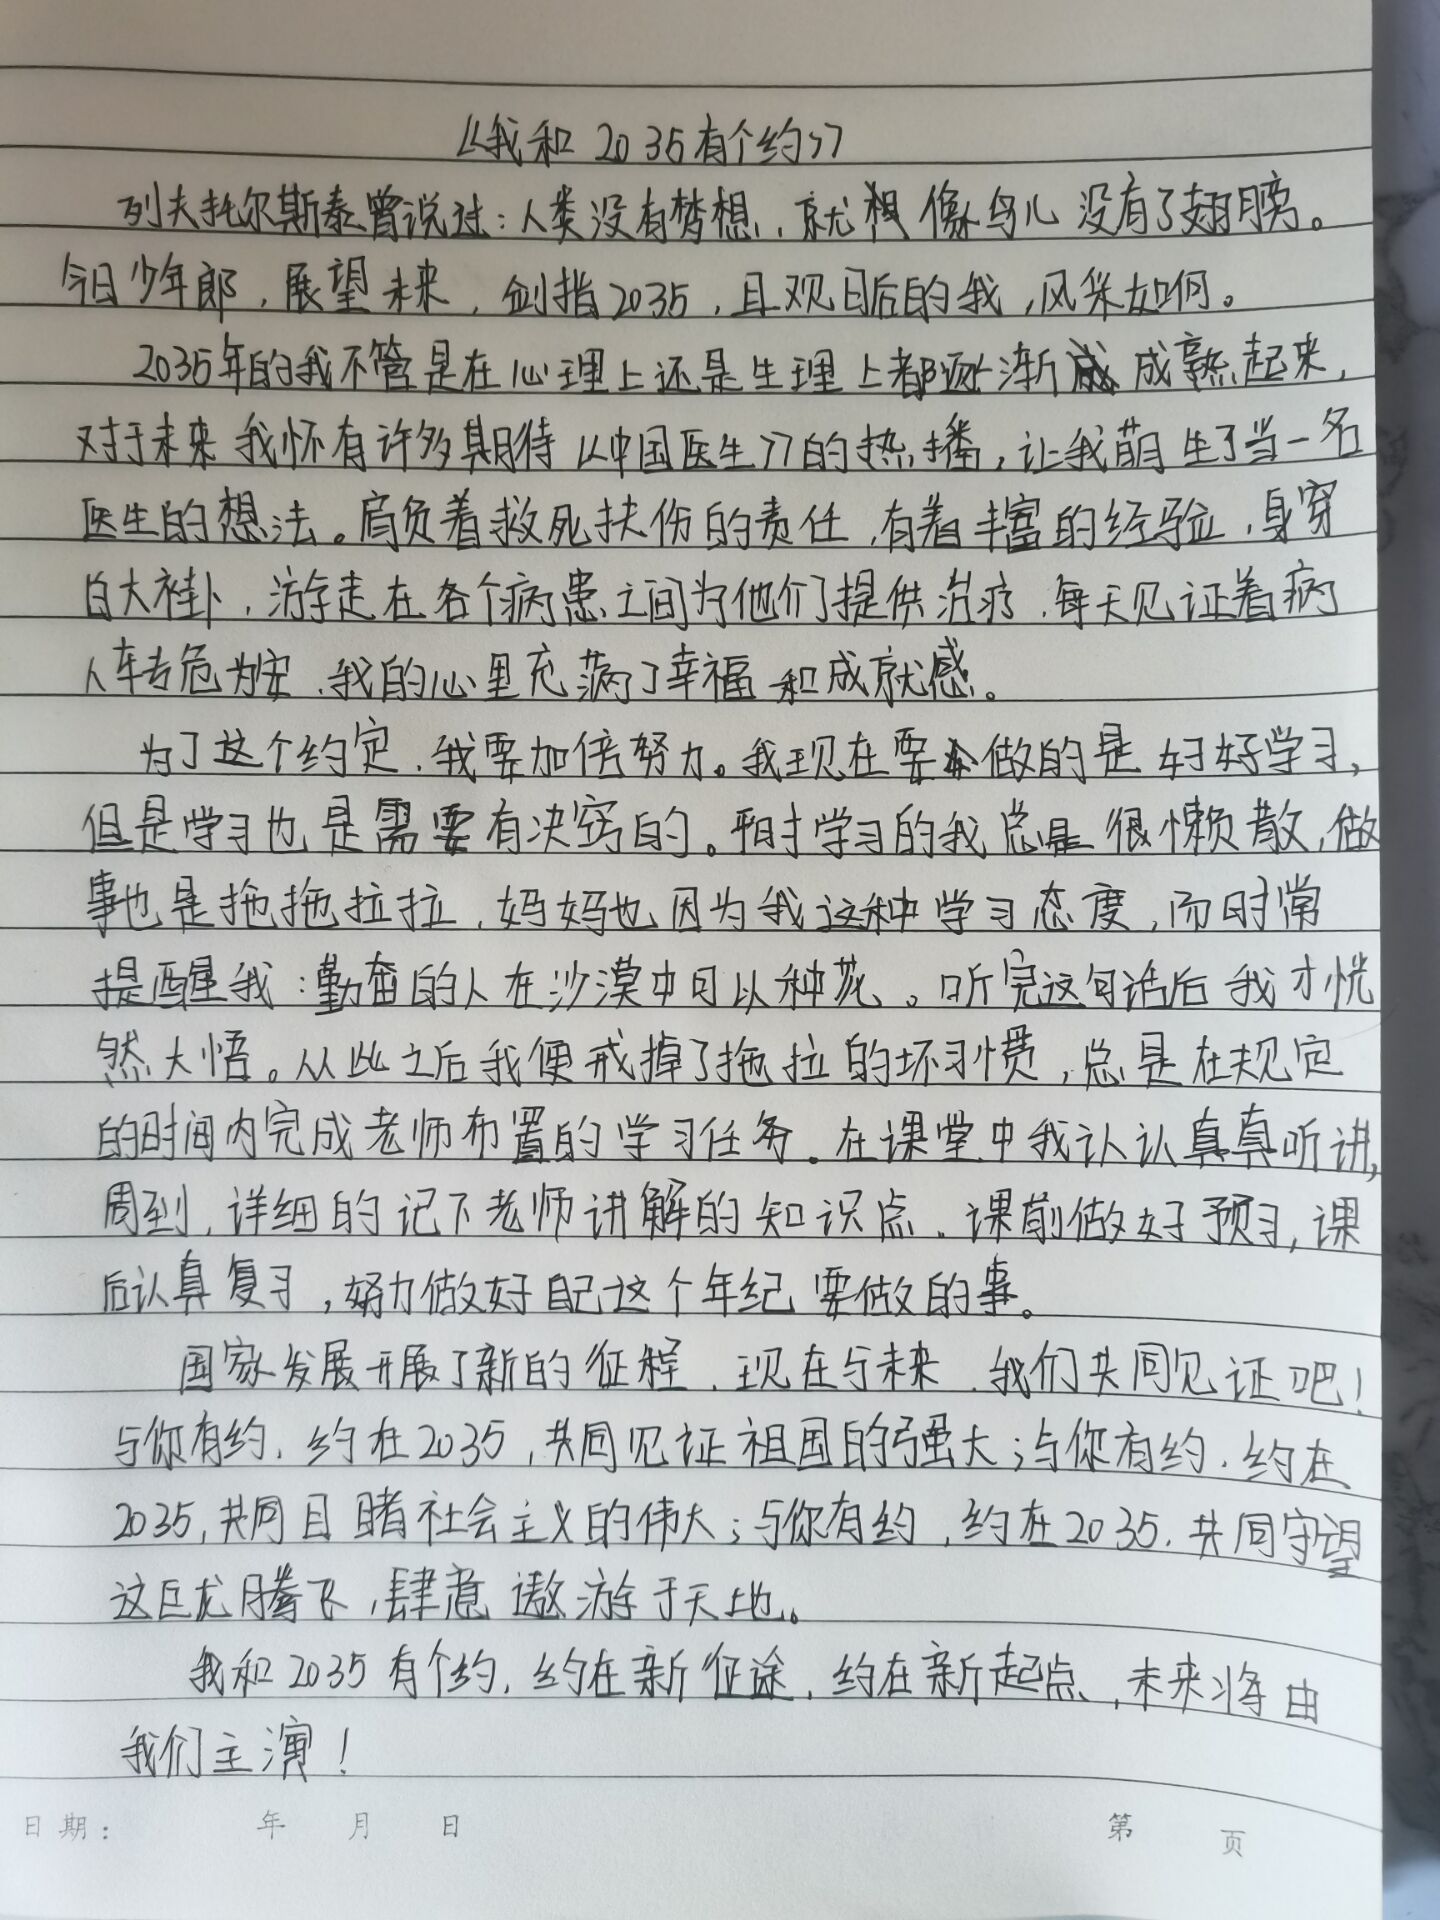 《我和2035有个约》
列夫托尔斯泰曾说过:人类没有梦想,就像鸟儿没有了翅膀。
今日少年郎,展望未来,剑指2035,且观日后的我,风华如何。
2035年的我不管是在心理上还是生理上都逐渐成熟起来,
对于未来我怀有许多期待《中国医生》的热播,让我萌生了当一名
医生的想法。肩负着救死扶伤的责任,有着丰富的经验,身穿
白大褂,游走在各个病患之间为他们提供治疗,每天见证着病
人转危为安,我的心里充满了幸福和成就感。
为了这个约定,我要加倍努力。我现在要做的是好好学习,
但是学习也是需要有决窍的。平时学习的我总是很懒散,做
事也是拖拖拉拉,妈妈也因为我这种学习态度,而时常
提醒我:勤奋的人在沙漠中可以种花。听完这句话后我才恍
然大悟。从此之后我便戒掉了拖拉的坏习惯,总是在规定
的时间内完成老师布置的学习任务。在课堂中我认认真真听讲,
周到,详细的记下老师讲解的知识点。课前做好预习,课
后认真复习,努力做好自己这个年纪要做的事。
国家发展开展了新的征程,现在与未来,我们共同见证吧!
与你有约,约在2035,共同见证祖国的强大;与你有约,约在
2035,共同目睹社会主义的伟大;与你有约,约在2035,共同守望
这巨龙腾飞,肆意遨游于天地。
我和2035有个约,约在新征途,约在新起点,未来将由
我们主演!
日期: 年 月 日 第 页